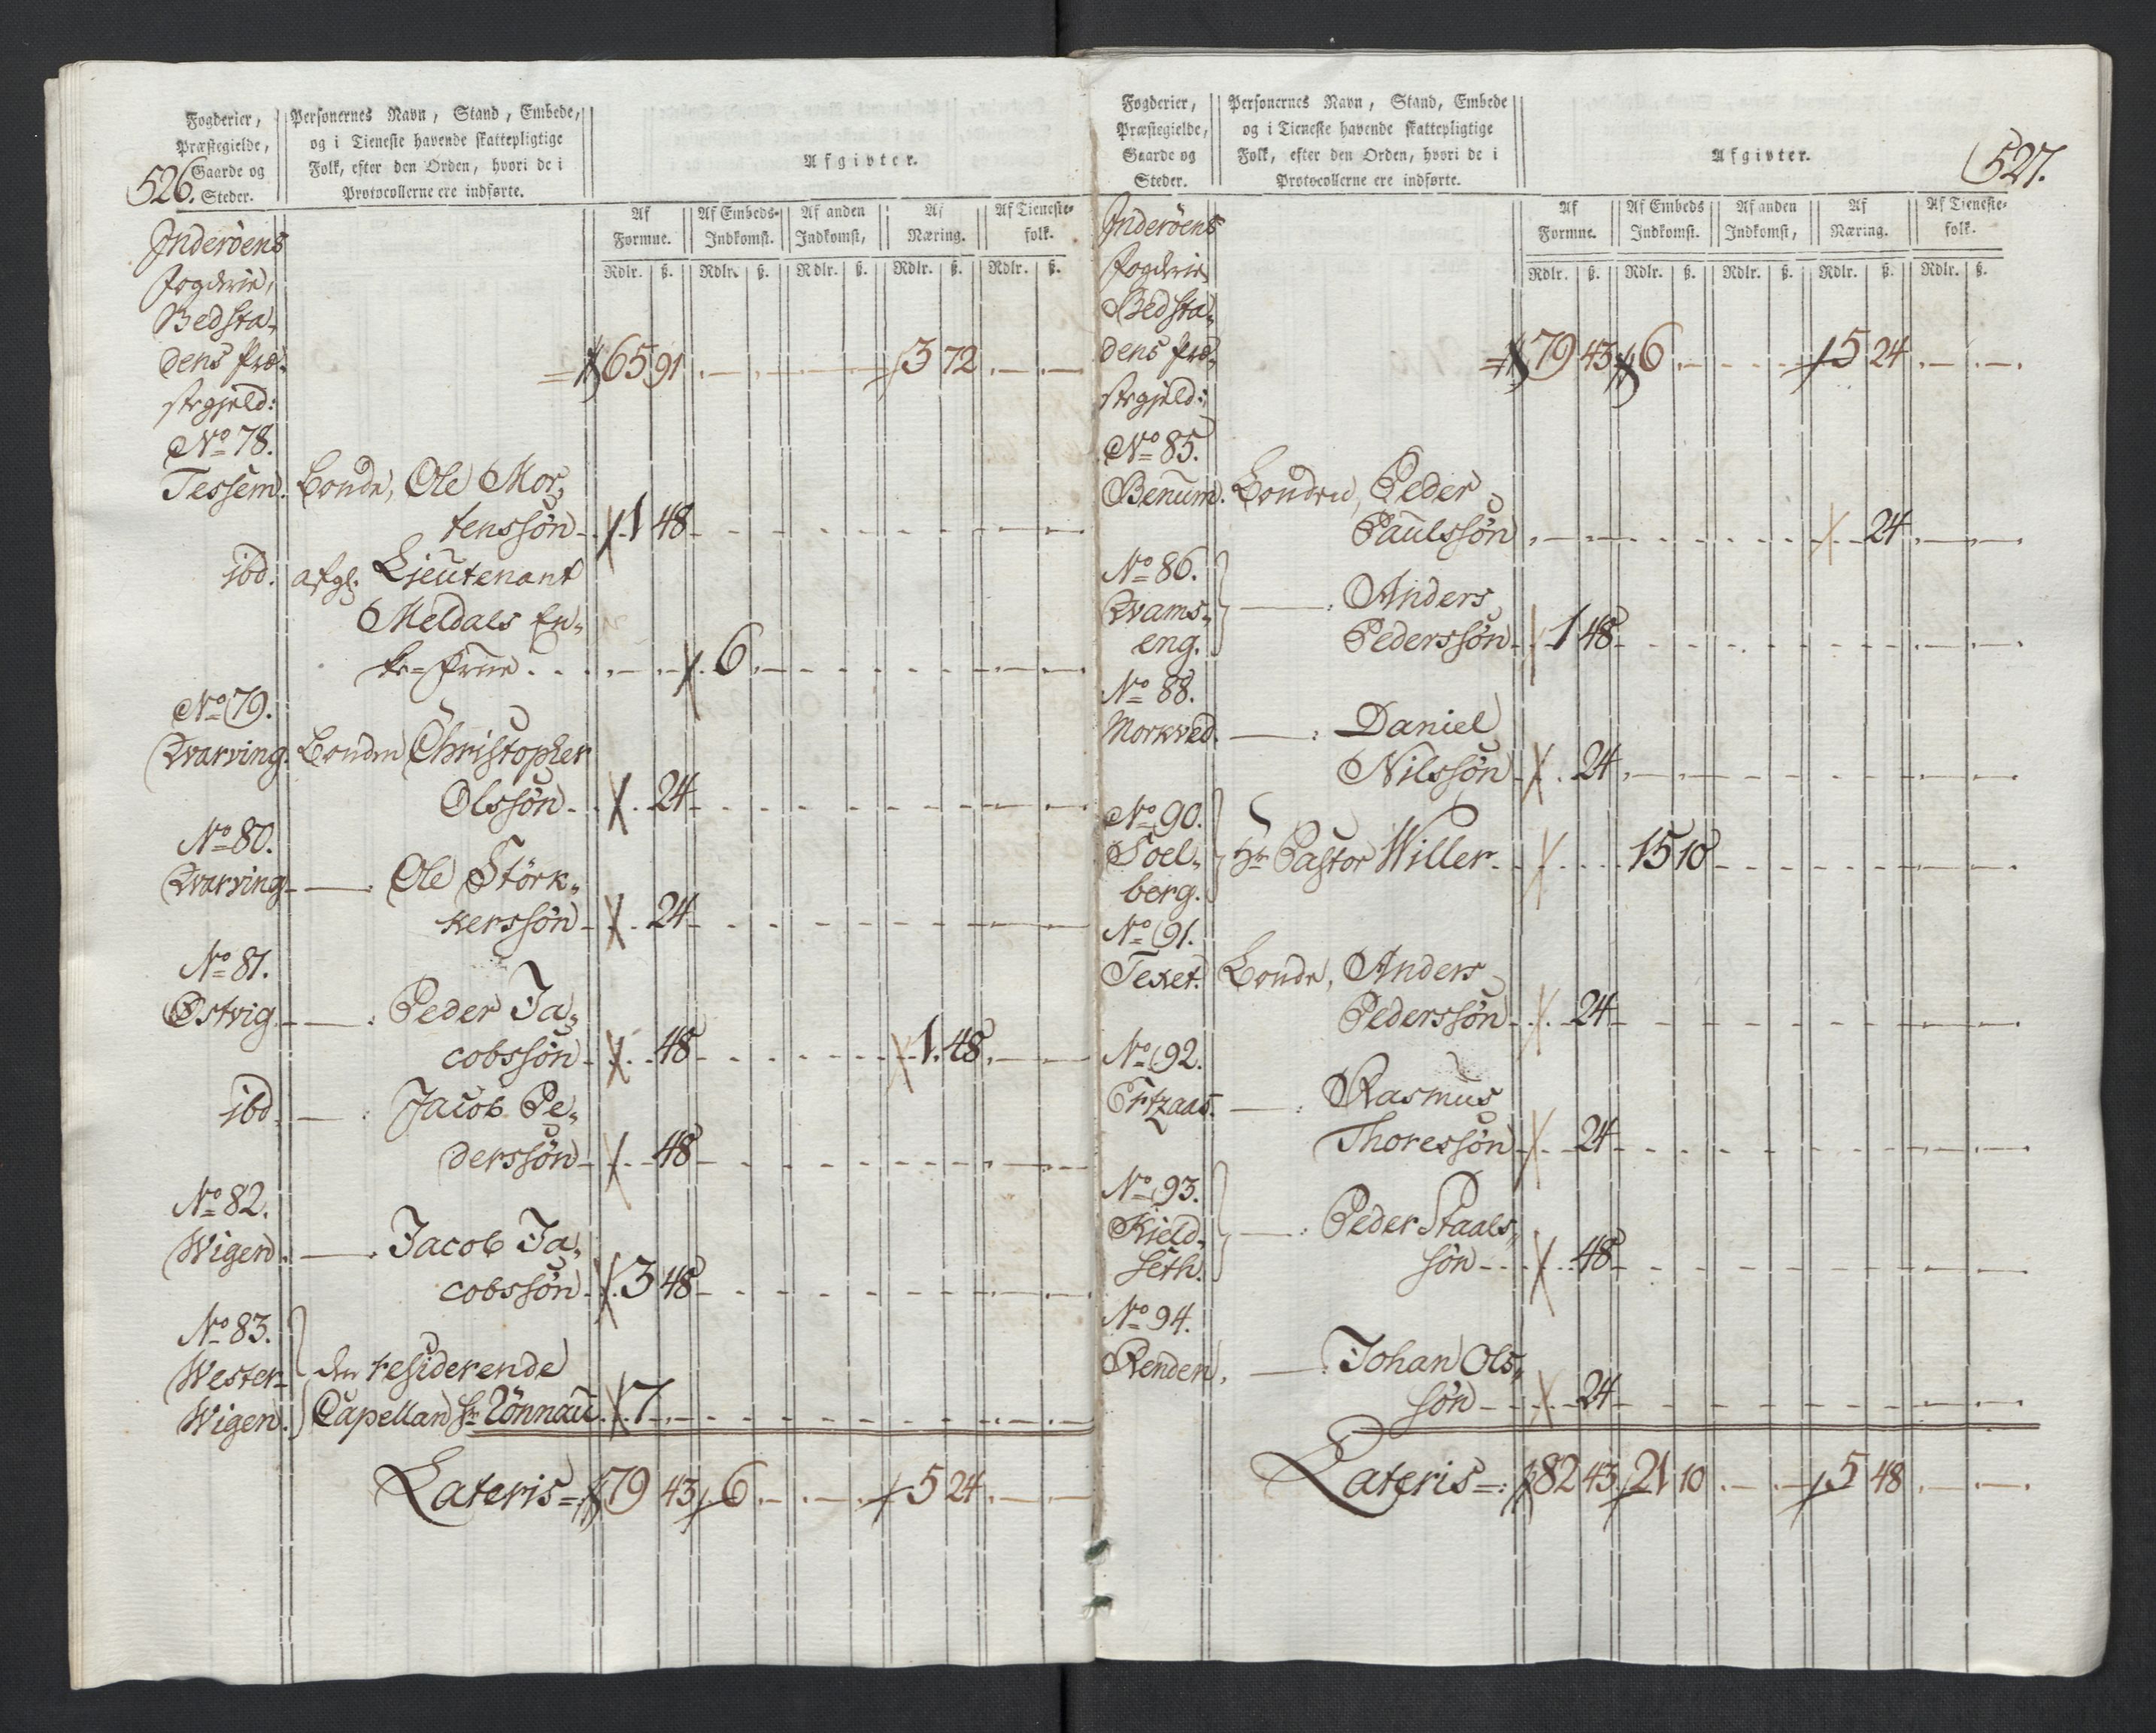 526.
Fogderier,
Præstegielde,
Gaarde og
Steder.
Personernes Navn, Stand, Embede,
og i Tieneste havende skattepligtige
Folk, efter den Orden, hvori de i
Protocollerne ere indførte.
Afgivter.
Af Formue. Af Embeds-Indkomst. Af anden Indkomst, Af Næring. Af Tieneste-folk.
Rdlr. ß. Rdlr. ß. Rdlr. ß. Rdlr. ß. Rdlr. ß.
Inderöens
Fogderie,
Bedsta-
dens Præ- 65 91 3 72
stegjeld:
No 78.
Tessem. Bonde, Ole Mor-
tenssön 1 48
ibd. afg. Lieutenant
Meldals En-
ke-Frue 6
No 79.
Qvarving. Bonden Christopher
Olssön 24
No 80.
Qvarving Ole Störk-
kerssön 24
No 81.
Östvig Peder Ja-
cobssön 48 1 48
ibd. Jacob Pe-
derssön 48
No 82.
Wigen Jacob Ja-
cobssön 3 48
No 83.
Wester- den residerende
Wigen. Capellan Hr Lönnau 7
Lateris = 79 43 6 5 24
527.
Fogderier,
Præstegielde,
Gaarde og
Steder.
Personernes Navn, Stand, Embede
og i Tieneste havende skattepligtige
Folk, efter den Orden, hvori de i
Protocollerne ere indførte.
Afgivter.
Af Formue. Af Embeds Indkomst. Af anden Indkomst, Af Næring. Af Tieneste-folk.
Rdlr. ß. Rdlr. ß. Rdlr. ß. Rdlr. ß. Rdlr. ß.
Inderöens
Fogderie
Bedsta-
dens Præ- 79 43 6 5 24
stegjeld:
No 85.
Benum. Bonden, Peder
Paulssön 24
No 86.
Qvams- Anders
eng. Pederssön 1 48
No 88.
Morkved. Daniel
Nilssön 24
No 90.
Soel- Hr Pastor Willer 15 10
berg.
No 91.
Texet. Bonde, Anders
Pederssön 24
No 92.
Rasmus
Thoressön 24
No 93.
Kield- Peder Staals-
seth. sön 48
No 94.
Renden, Johan Ols-
sön 24
Lateris = 82 43 21 10 5 48